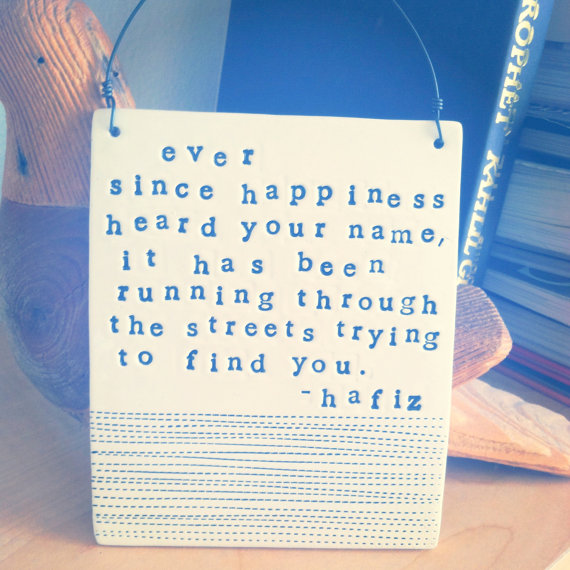 ever
since happiness
heard your name,
it has been
running through
the streets trying
to find you.
-hafiz
PROPHET